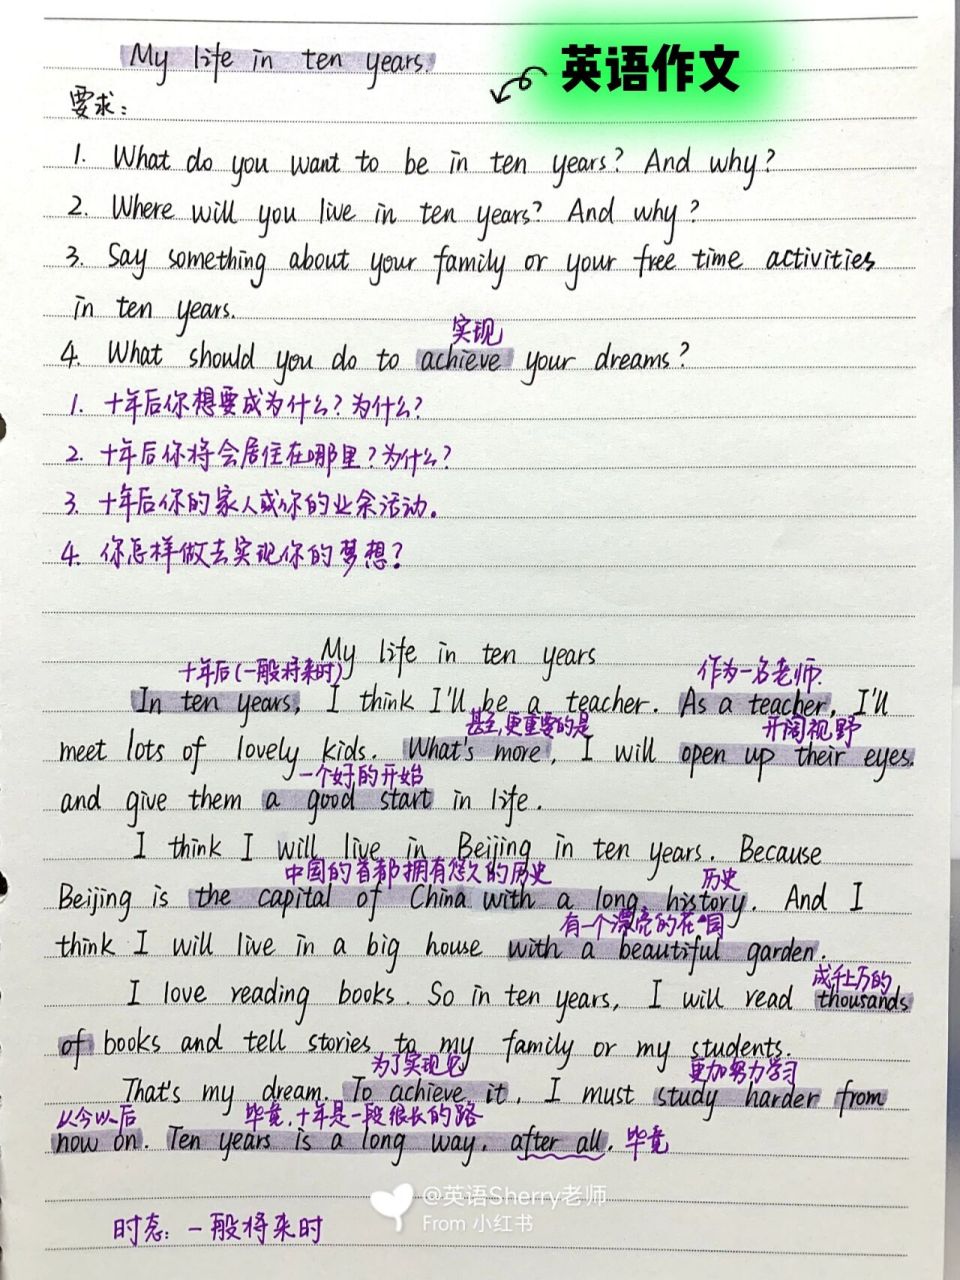 My life in ten years.
英语作文
要求:
1. What do you want to be in ten years? And why?
2. Where will you live in ten years? And why?
3. Say something about your family or your free time activities
in ten years.
实现
4. What should you do to achieve your dreams?
1. 十年后你想要成为什么?为什么?
2. 十年后你将会居住在哪里?为什么?
3. 十年后你的家人或你的业余活动。
4. 你怎样做去实现你的梦想?
My life in ten years
十年后(一般将来时) 作为一名老师.
In ten years, I think I'll be a teacher. As a teacher, I'll
甚至,更重要的是 开阔视野
meet lots of lovely kids. What's more, I will open up their eyes.
一个好的开始
and give them a good start in life.
I think I will live in Beijing in ten years. Because
中国的首都拥有悠久的历史 历史
Beijing is the capital of China with a long history. And I
有一个漂亮的花园
think I will live in a big house with a beautiful garden.
成千上万的
I love reading books. So in ten years, I will read thousands
of books and tell stories to my family or my students.
为了实现它 更加努力学习
That's my dream. To achieve it, I must study harder from
从今以后 毕竟,十年是一段很长的路
now on. Ten years is a long way, after all. 毕竟
@英语Sherry老师
From 小红书
时态: 一般将来时